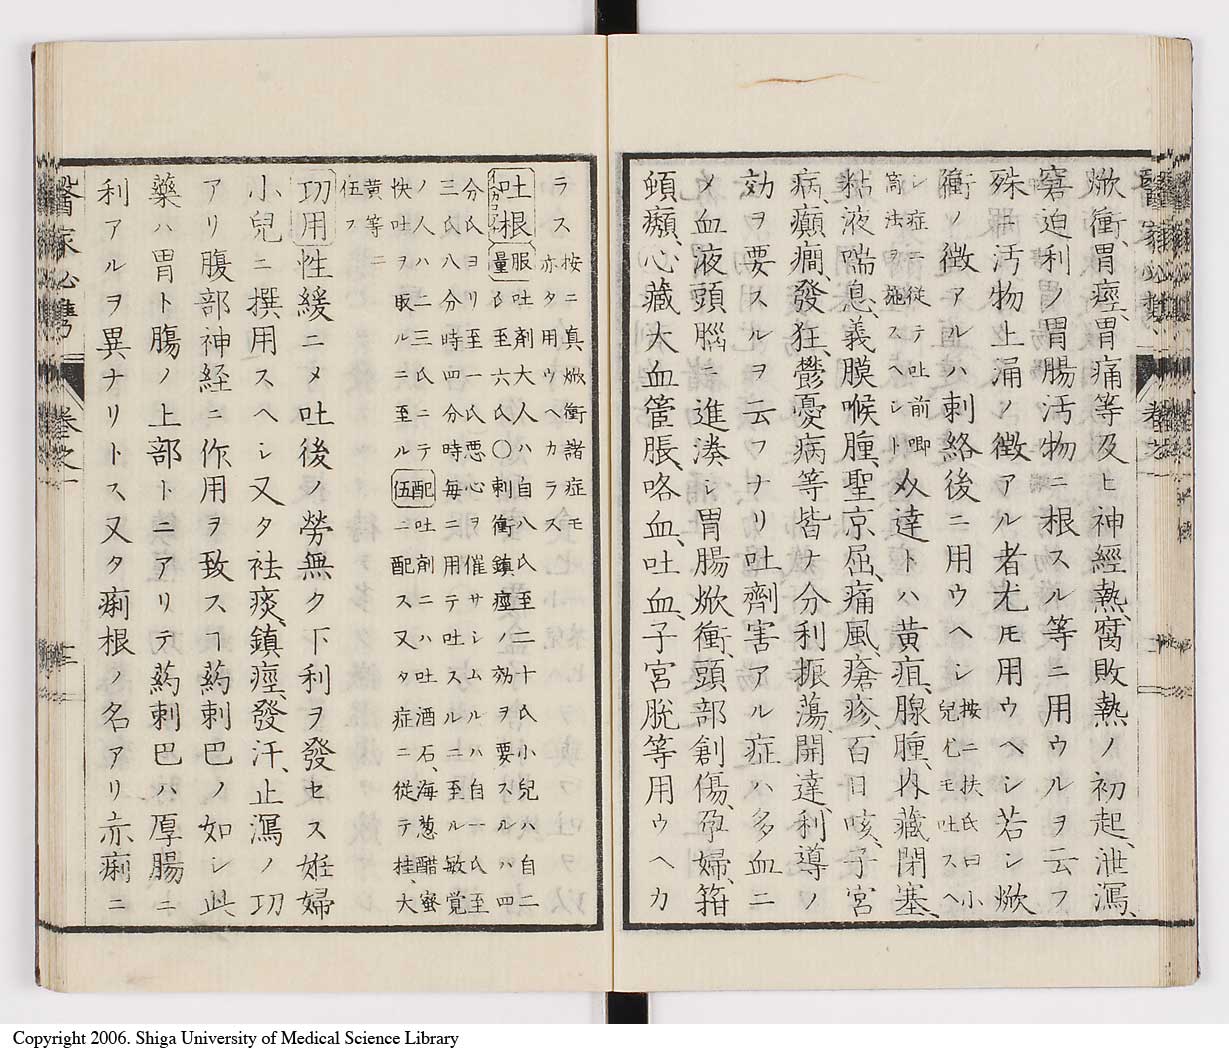 焮衝、胃痙、胃痛等及ヒ神經熱、腐敗熱ノ初起、泄瀉、
窘迫、利ノ胃腸汚物ニ根スル等ニ用ウルヲ云フ
殊ニ汚物上涌ノ徴アル者尤モ用ウヘシ若シ焮
衝ノ徴アルハ刺絡後ニ用ウヘシ
按ニ扶氏曰小
兒尤モ吐スヘ
シ症ニ從テ吐前
奇法ヲ施スヘシト
達ハ黄疸、腺腫、内藏閉塞、
粘液喘息、義膜喉腫、聖京屈、痛風、瘡疹、百日咳、子宮
病、癲癇、發狂、鬱憂病等皆ナ分利振蕩、開達、利導ノ
効ヲ要スルヲ云フナリ吐劑害アル症ハ多血ニ
メ血液頭腦ニ進湊シ胃腸焮衝、頭部創傷、孕婦、箝
頓㿗、心藏大血管脹、咯血、吐血、子宮脱等用ウヘカ
ラス
按ニ真焮衝諸症モ
亦タ用ウヘカラス
吐根
服量
吐剤大人ハ自八氏至二十氏小兒ハ自二
氏至六氏〇刺衝鎮痙ノ効ヲ要スルハ四
分氏ヨリ至一氏悪心ヲ催サシムルハ自二氏至
三氏八分時四分時毎ニ用テ吐スルニ至ル敏覚
ノ人ハ二三氏ニテ
快吐ヲ取ルニ至ル
配伍
吐剤ニハ吐酒石、海葱醋蜜
ニ配ス又タ症ニ從テ桂、大
黄等ニ
伍フ
功用
性緩ニメ吐後ノ勞無ク下利ヲ發セス姙婦
小兒ニ撰用スヘシ又タ袪痰、鎮痙、發汗、止瀉ノ功
アリ腹部神経ニ作用ヲ致スヿ葯刺巴ノ如シ此
藥ハ胃ト腸ノ上部トニアリテ葯刺巴ハ厚腸ニ
利アルヲ異ナリトス又タ痢根ノ名アリ赤痢ニ
醫家必携
卷之一
三
Copyright 2006. Shiga University of Medical Science Library